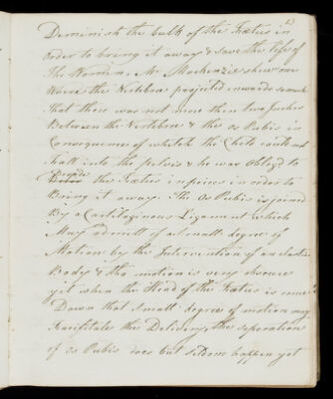 23
Deminish the bulk of the Fœtus in
order to bring it away & save the life of
the Woman. Mr. Mackenzie shew'd one
where the Vertebræ projected inwards so much
that there was not more then two Inches
Between the Vertebræ & the os Pubis in
Consequence of which the Child could not
fall into the pelvis & he was Oblig'd to
the Fœtus in pieces in order to
Bring it away. The Os Pubis is joined
By a Cartilaginous Ligament which
May admitt of a small degree of
Motion by the Intervention of an elastic
Body & the motion is very obscure
yet when the Head of the Fœtus is come
Down that small degree of motion may
Facilitates the Delivery, the seperation
of os Pubis does but seldom happen yet